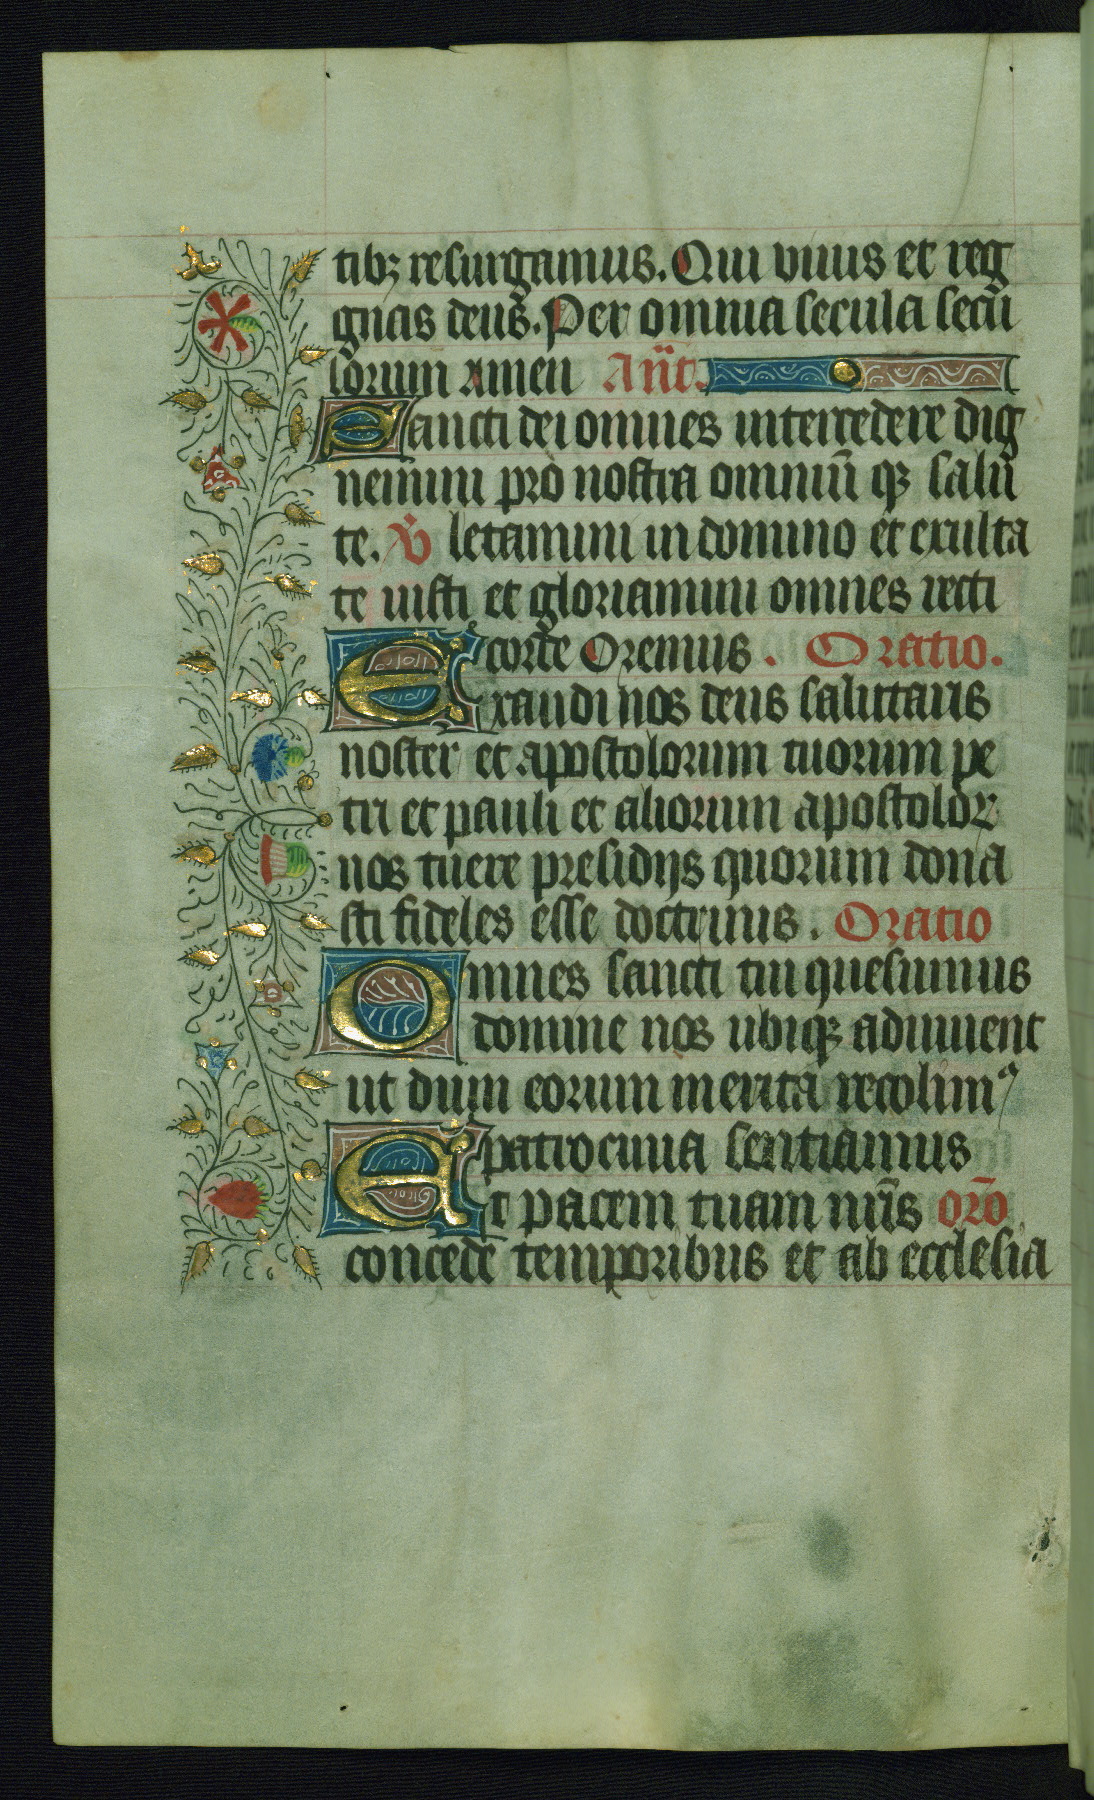 tibꝫ resurgamus. Qui viuis et reg
gnas deus. Per omnia secula secu
lorum amen Ant̄.
Sancti dei omnes intercedere dig
nemini pro nostra omniū qꝫ salu
te. V̄ letamini in domino et exulta
te iusti et gloriamini omnes recti
corde Oremus. Oratio.
Exaudi nos deus salutaris
noster et apostolorum tuorum pe
tri et pauli et aliorum apostoloꝝ
nos tuere presidijs quorum dona
sti fideles esse doctrinis. Oratio
Omnes sancti tui quesumus
domine nos ubiqꝫ adiuuent
ut dum eorum merita recolimꝰ
patrocinia sentiamus
Et pacem tuam nr̄is orō
concede temporibus et ab ecclesia